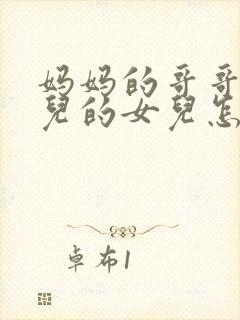 妈妈的哥哥
兒的女兒怎
卓布1